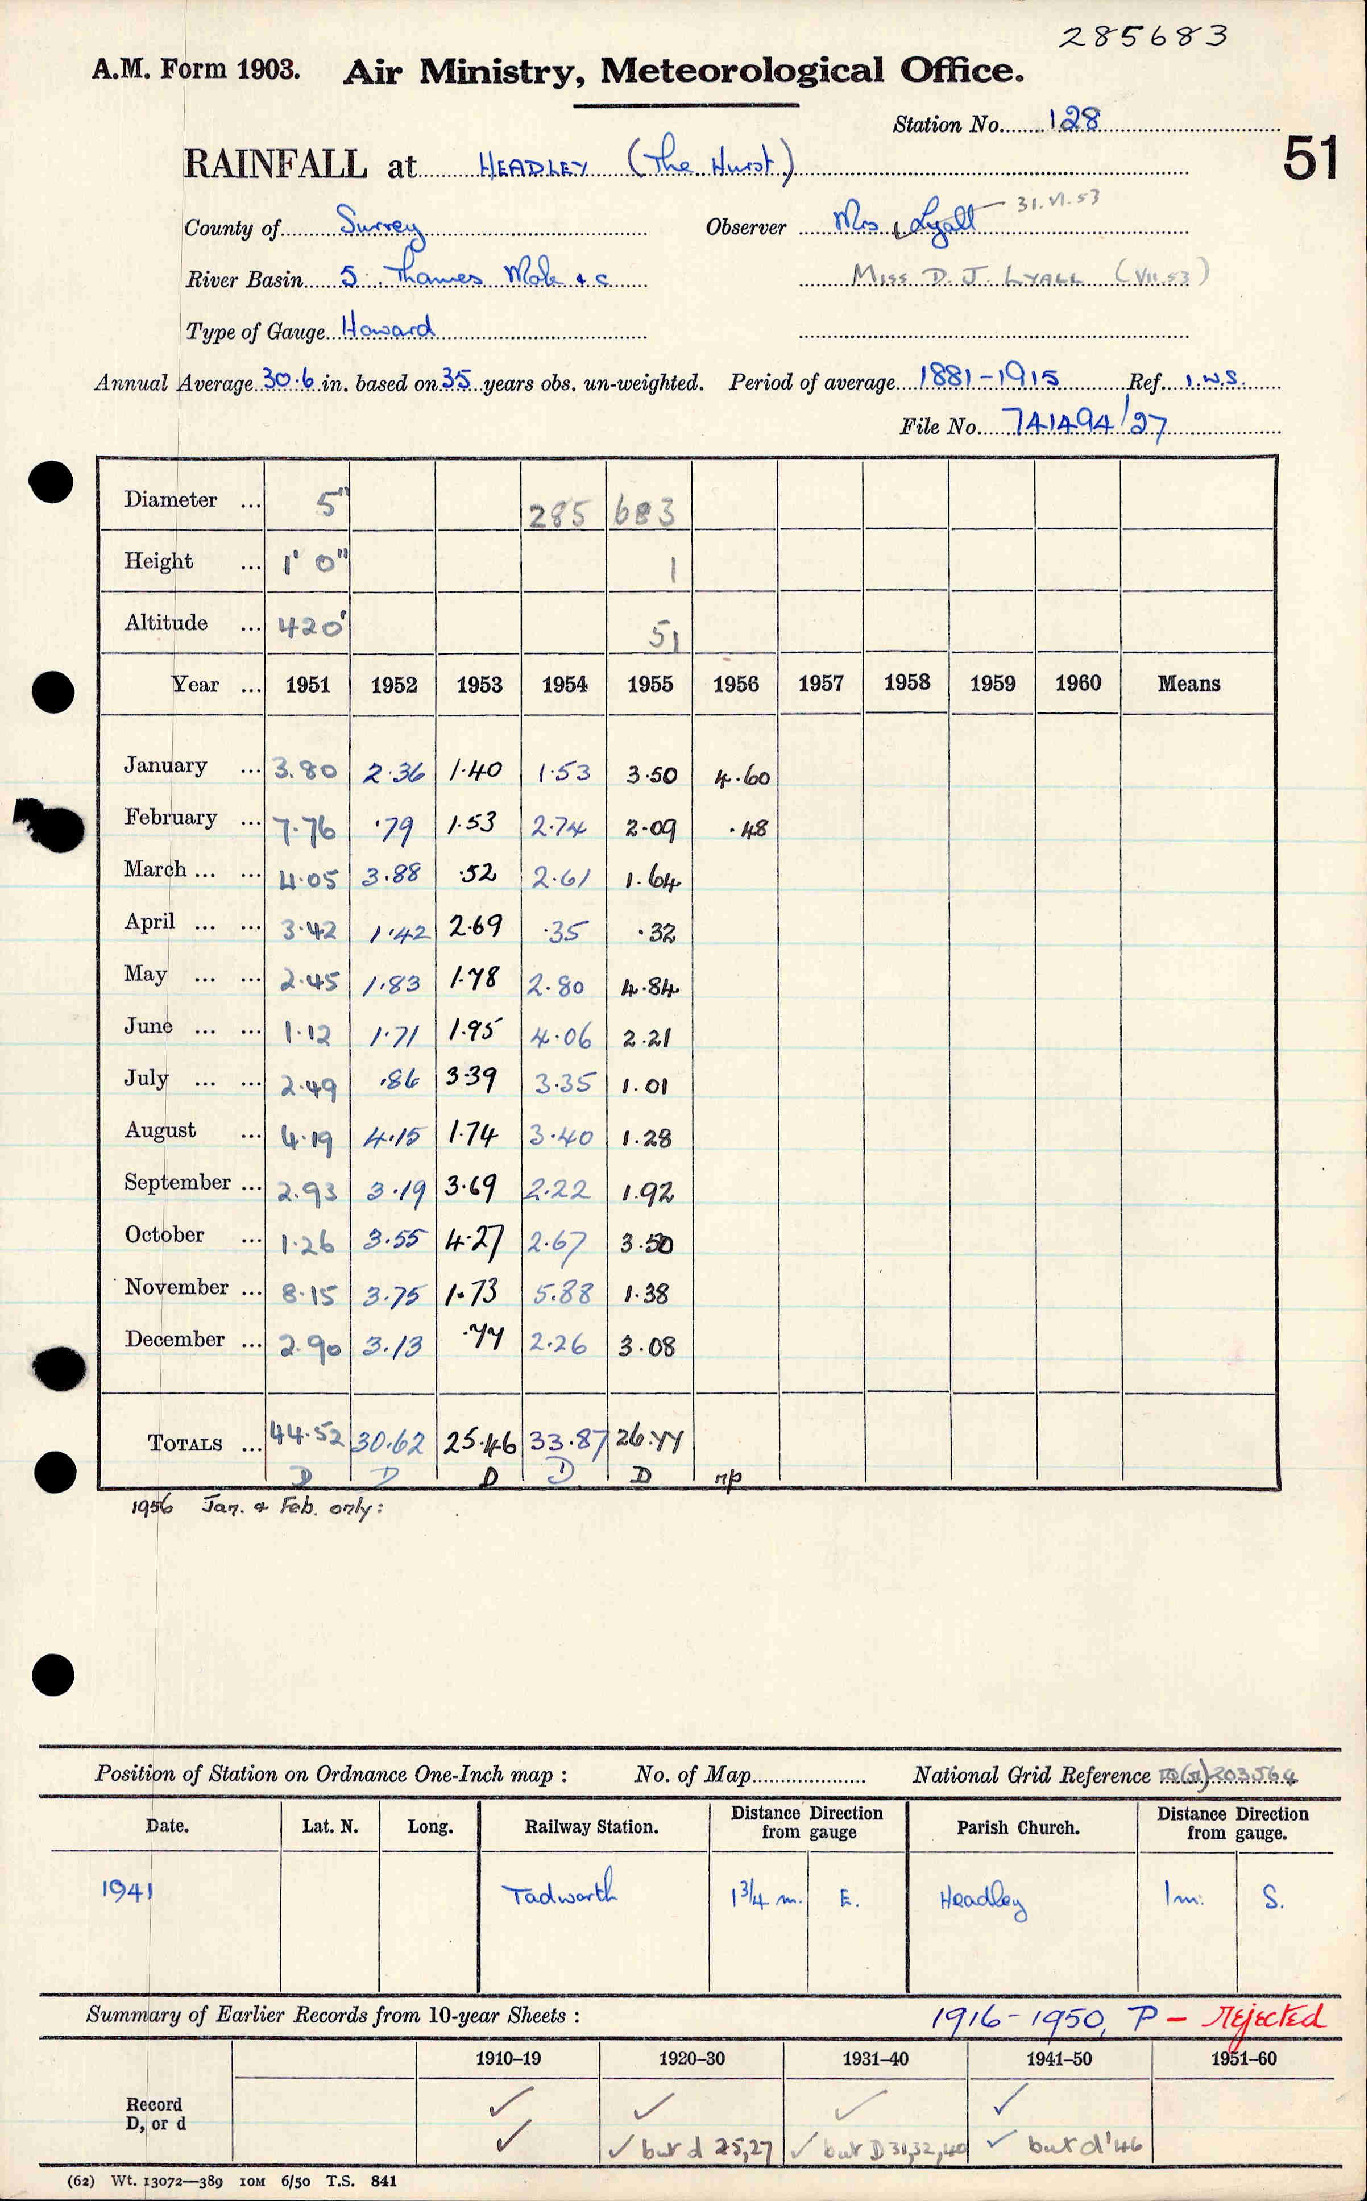 285683
A.M. Form 1903. Air Ministry, Meteorological Office.
Station No. 128
51
RAINFALL at HEADLEY (The Hurst)
County of Surrey Observer Mrs Lyall 31.VI.53
River Basin 5. Thames Mole & c Miss D. J. LYALL (VII.53)
Type of Gauge Howard
Annual Average 30.6 in. based on 35 years obs. un-weighted. Period of average 1881-1915 Ref. I.W.S.
File No. 741494/27
Diameter ... 5" 285 683
Height ... 1' 0" 1
Altitude ... 420' 51
Year ... 1951 1952 1953 1954 1955 1956 1957 1958 1959 1960 Means
January ... 3.80 2.36 1.40 1.53 3.50 4.60
February ... 7.76 .79 1.53 2.74 2.09 .48
March ... ... 4.05 3.88 .52 2.61 1.64
April ... ... 3.42 1.42 2.69 .35 .32
May ... ... 2.45 1.83 1.78 2.80 4.84
June ... ... 1.12 1.71 1.95 4.06 2.21
July ... ... 2.49 .86 3.39 3.35 1.01
August ... 4.19 4.15 1.74 3.40 1.28
September ... 2.93 3.19 3.69 2.22 1.92
October ... 1.26 3.55 4.27 2.67 3.50
November ... 8.15 3.75 1.73 5.88 1.38
December ... 2.90 3.13 .77 2.26 3.08
TOTALS ... 44.52 30.62 25.46 33.87 26.77
D D D D D np
1956 Jan. & Feb. only:
Position of Station on Ordnance One-Inch map : No. of Map National Grid Reference 203564
Date. Lat. N. Long. Railway Station. Distance Direction from gauge Parish Church. Distance Direction from gauge.
1941 Tadworth 1 3/4 m. E. Headley 1m. S.
Summary of Earlier Records from 10-year Sheets : 1916-1950, P - Rejected
1910–19 1920–30 1931–40 1941–50 1951–60
Record ✓ ✓ ✓ ✓
D, or d ✓ ✓ but d 25,27 ✓ but D 31,32,40 ✓ but d '46
(62) Wt. 13072—389 10M 6/50 T.S. 841